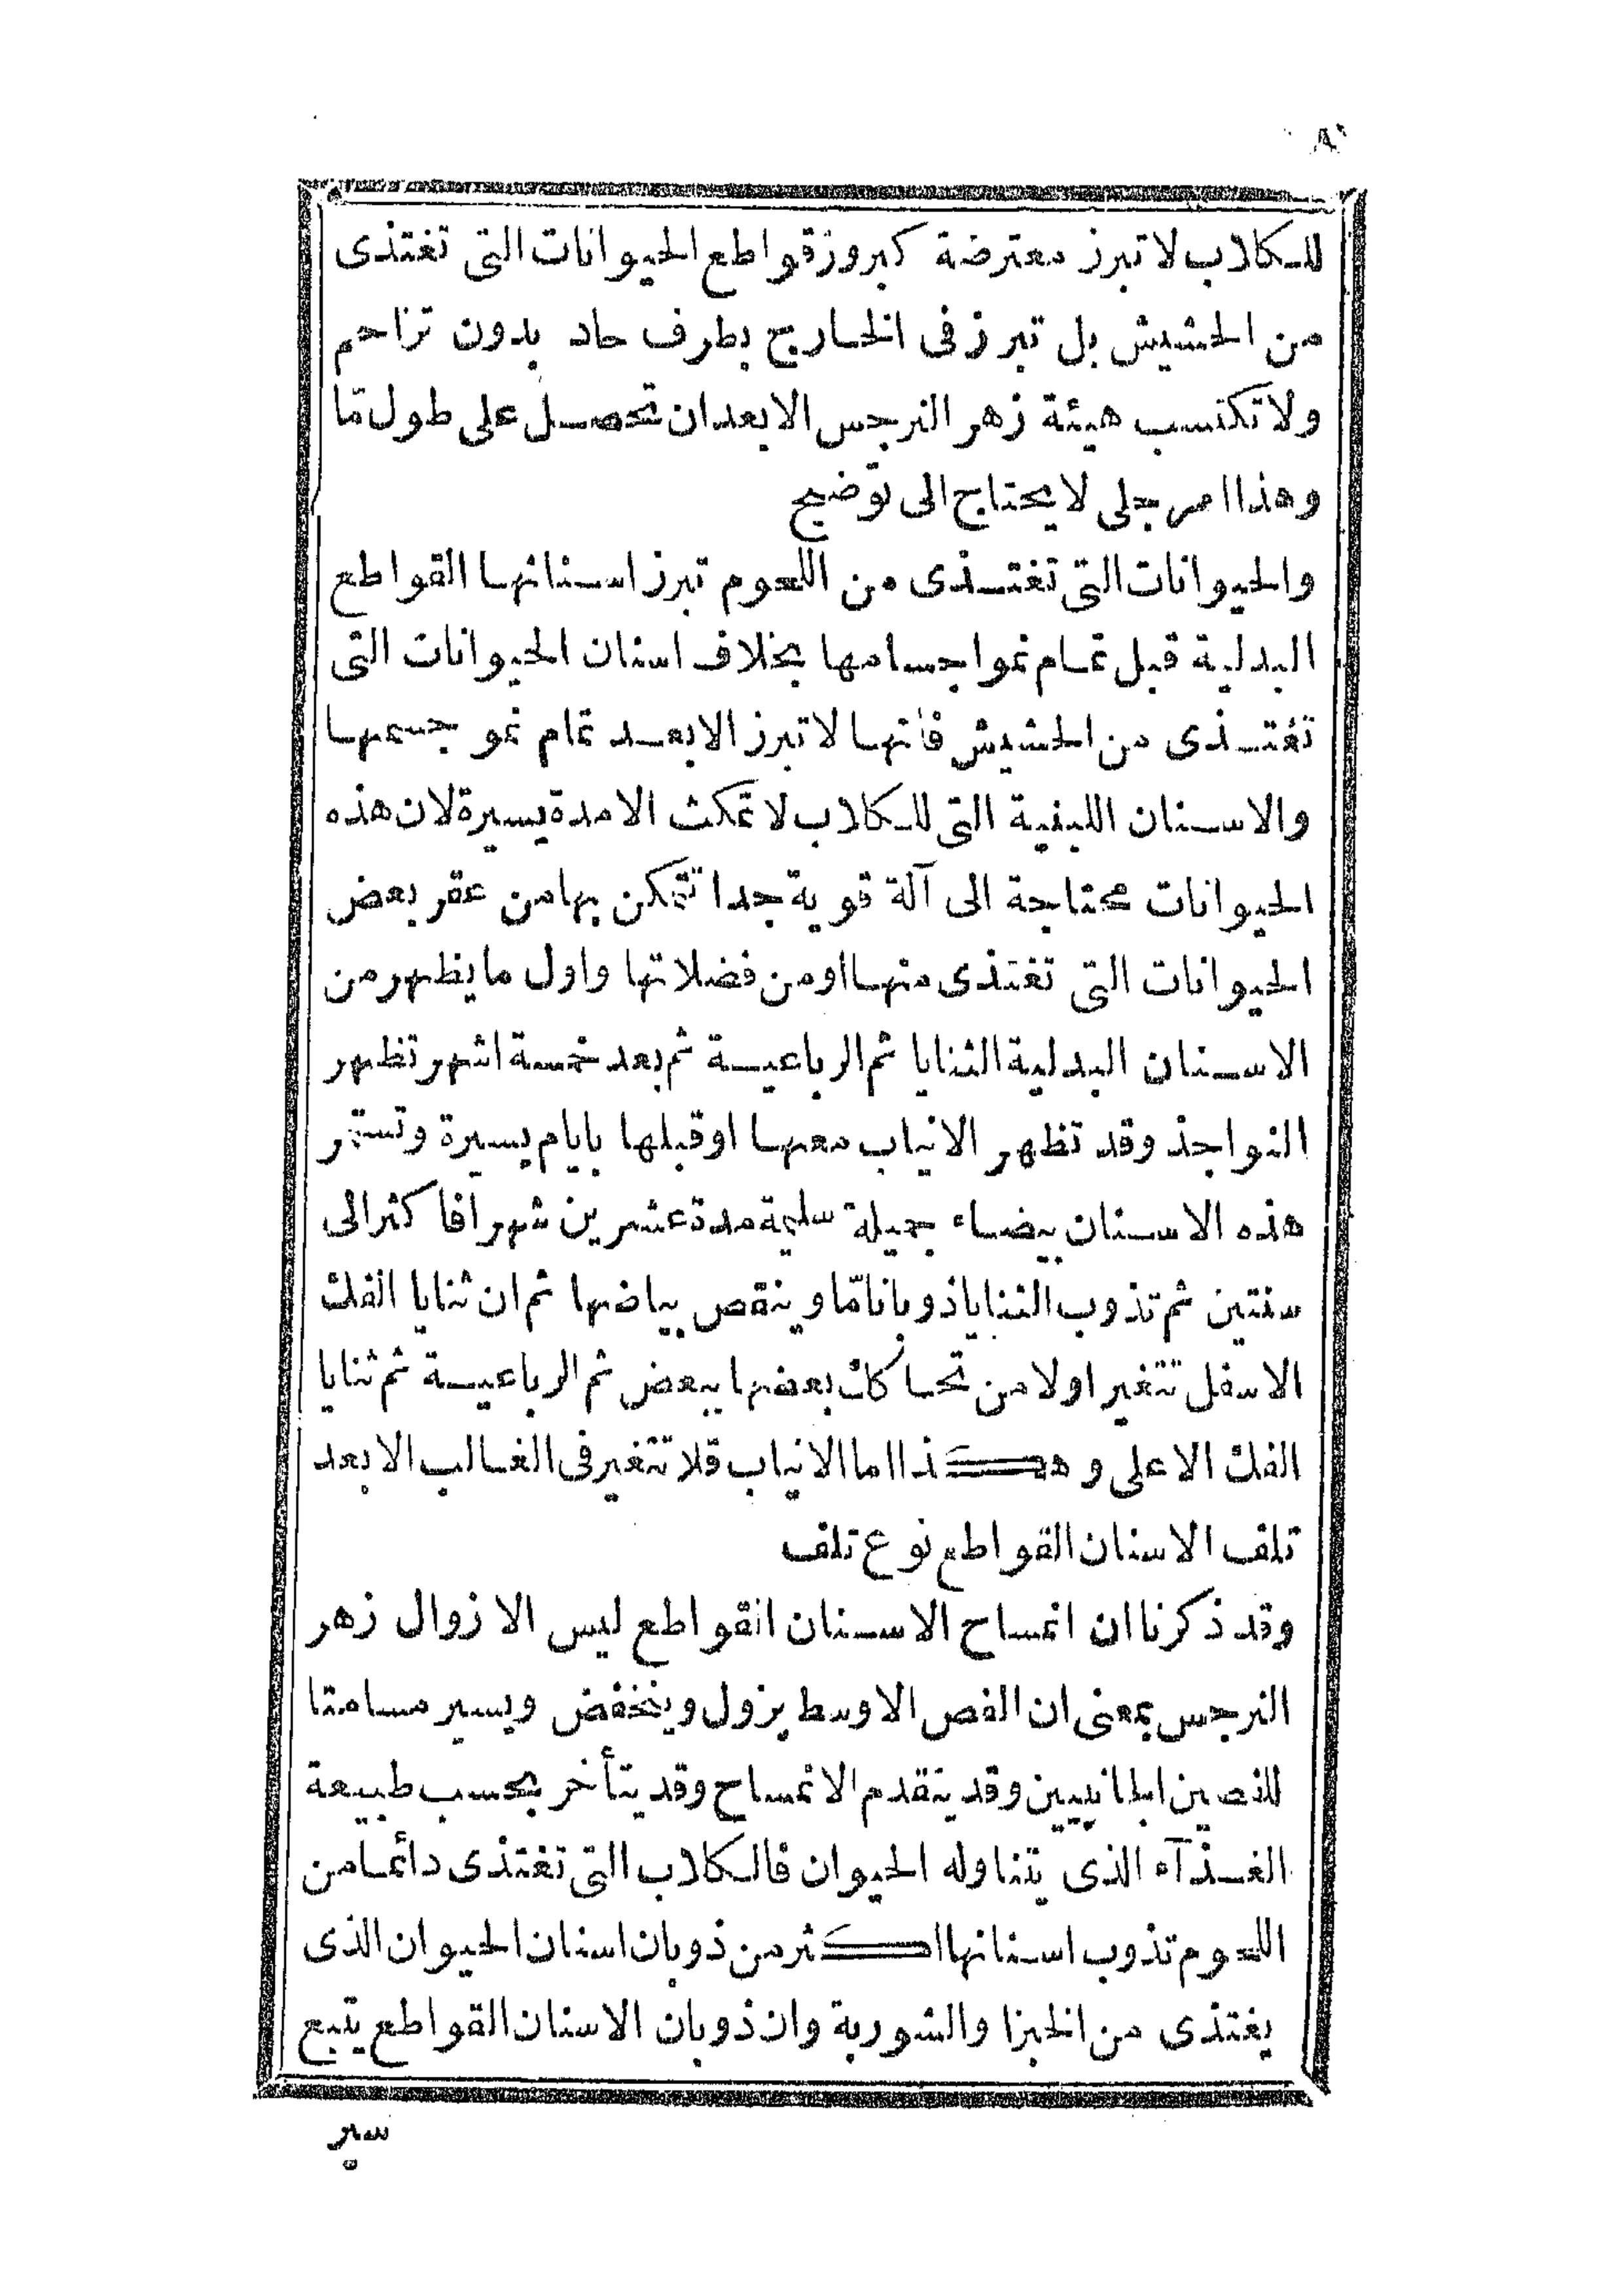 للكلاب لا تبرز معترضة كبروز قواطع الحيوانات التى تغتذى
من الحشيش بل تبرز فى الخارج بطرف حاد بدون تزاحم
ولا تكتسب هيئة زهر النرجس الا بعد ان تحصل على طول مّا
وهذا امر جلى لا يحتاج الى توضيح
والحيوانات التى تغتذى من اللحوم تبرز اسنانها القواطع
البدلية قبل تمام نمو اجسامها بخلاف اسنان الحيوانات التى
تغتذى من الحشيش فانها لا تبرز الا بعد تمام نمو جسمها
والاسنان اللبنية التى للكلاب لا تمكث الا مدة يسيرة لان هذه
الحيوانات محتاجة الى آلة قوية جدا تتمكن بها من عقر بعض
الحيوانات التى تغتذى منها او من فضلاتها واول ما يظهر من
الاسنان البدلية الثنايا ثم الرباعية ثم بعد خمسة اشهر تظهر
النواجذ وقد تظهر الانياب معها او قبلها بايام يسيرة وتستمر
هذه الاسنان بيضاء جميلة سليمة مدة عشرين شهرا فاكثر الى
سنتين ثم تذوب الثنايا ذوبانا مّا وينقص بياضها ثم ان ثنايا الفك
الاسفل تتغير اولا من تحاكك بعضها ببعض ثم الرباعية ثم ثنايا
الفك الاعلى وهكذا اما الانياب فلا تتغير فى الغالب الا بعد
تلف الاسنان القواطع نوع تلف
وقد ذكرنا ان انمساح الاسنان القواطع ليس الا زوال زهر
النرجس بمعنى ان الفص الاوسط يزول وينخفض ويسير مسامتا
للفصين الجانبيين وقد يتقدم الانمساح وقد يتأخر بحسب طبيعة
الغذآء الذى يتناوله الحيوان فالكلاب التى تغتذى دائما من
اللحوم تذوب اسنانها اكثر من ذوبان اسنان الحيوان الذى
يغتذى من الخبز او الشوربة وان ذوبان الاسنان القواطع يتبع
سير